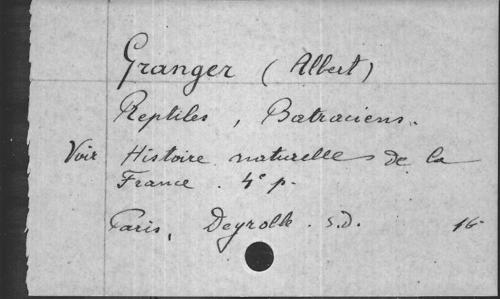 Granger (Albert)
Reptiles, Batraciens.
Voir Histoire naturelle de la
France. 4e p.
Paris, Deyrolle. s.d. 16-